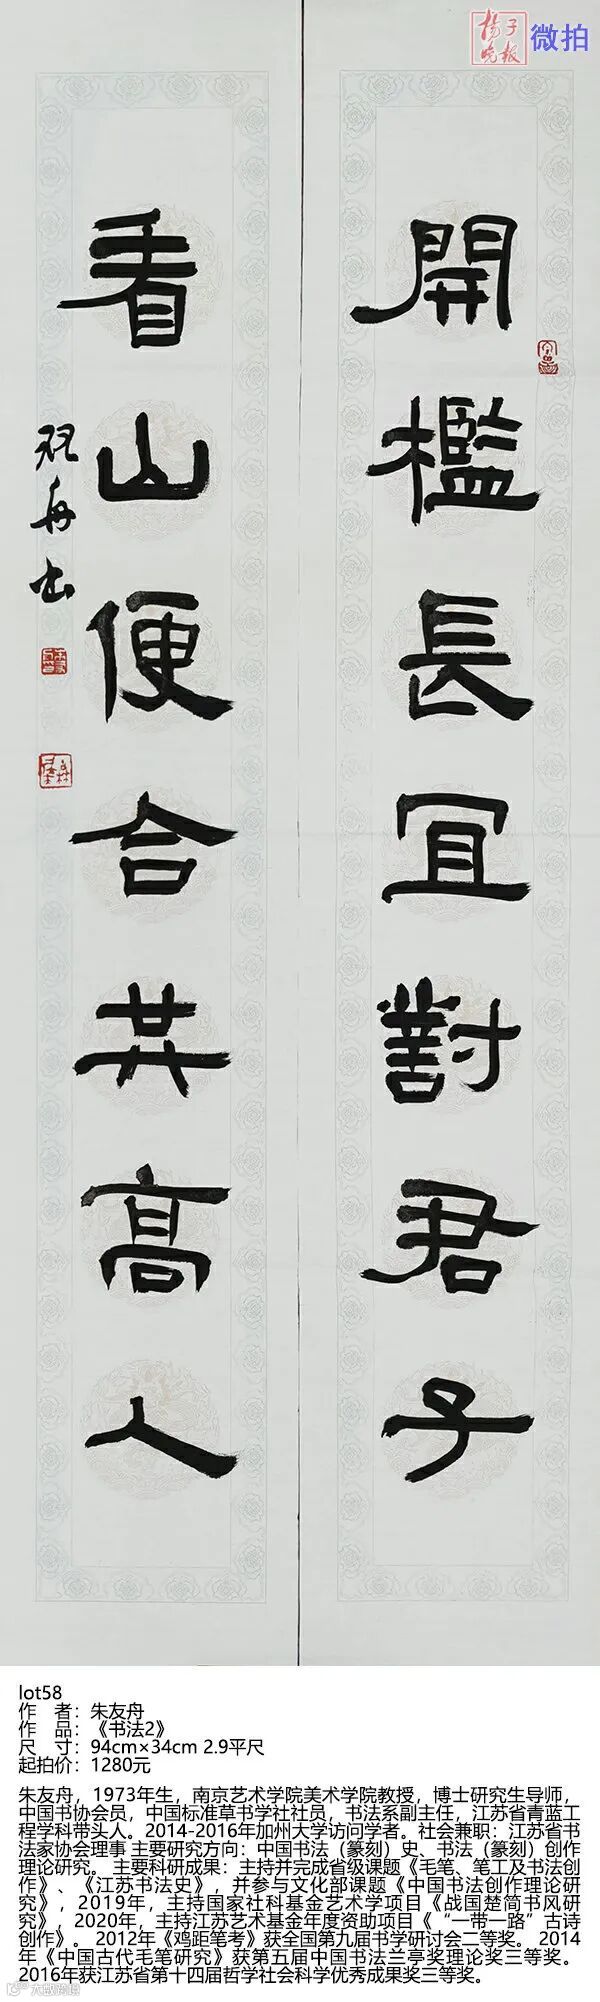 扬子晚报 微拍
開檻長宜對君子
看山便合共高人
友舟书
lot58
作 者：朱友舟
作 品：《书法2》
尺 寸：94cm×34cm 2.9平尺
起拍价：1280元
朱友舟，1973年生，南京艺术学院美术学院教授，博士研究生导师，
中国书协会员，中国标准草书学社社员，书法系副主任，江苏省青蓝工
程学科带头人。2014-2016年加州大学访问学者。社会兼职：江苏省书
法家协会理事 主要研究方向：中国书法（篆刻）史、书法（篆刻）创作
理论研究。 主要科研成果：主持并完成省级课题《毛笔、笔工及书法创
作》、《江苏书法史》，并参与文化部课题《中国书法创作理论研
究》，2019年，主持国家社科基金艺术学项目《战国楚简书风研
究》，2020年，主持江苏艺术基金年度资助项目《“一带一路”古诗
创作》。 2012年《鸡距笔考》获全国第九届书学研讨会二等奖。 2014
年《中国古代毛笔研究》获第五届中国书法兰亭奖理论奖三等奖。
2016年获江苏省第十四届哲学社会科学优秀成果奖三等奖。
大数跨境